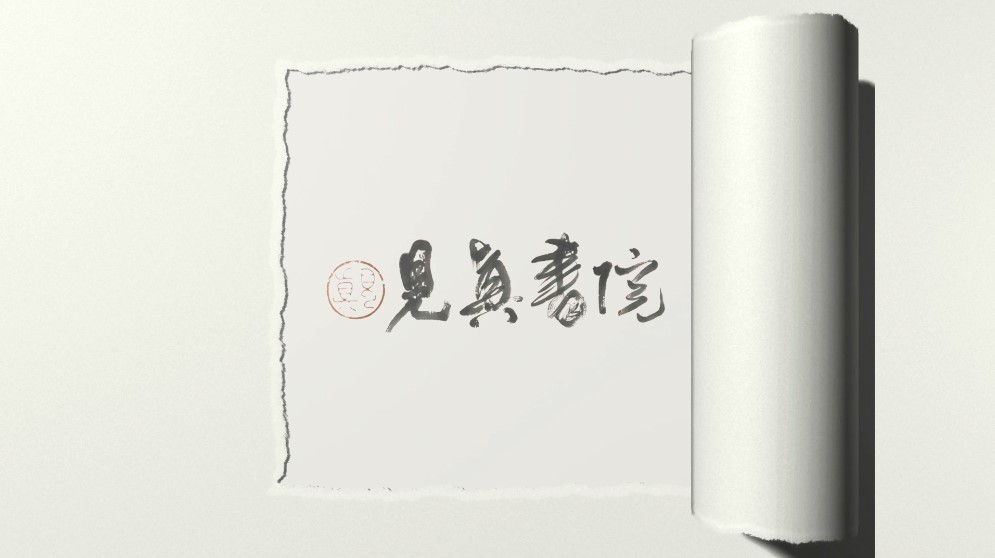 見真書院